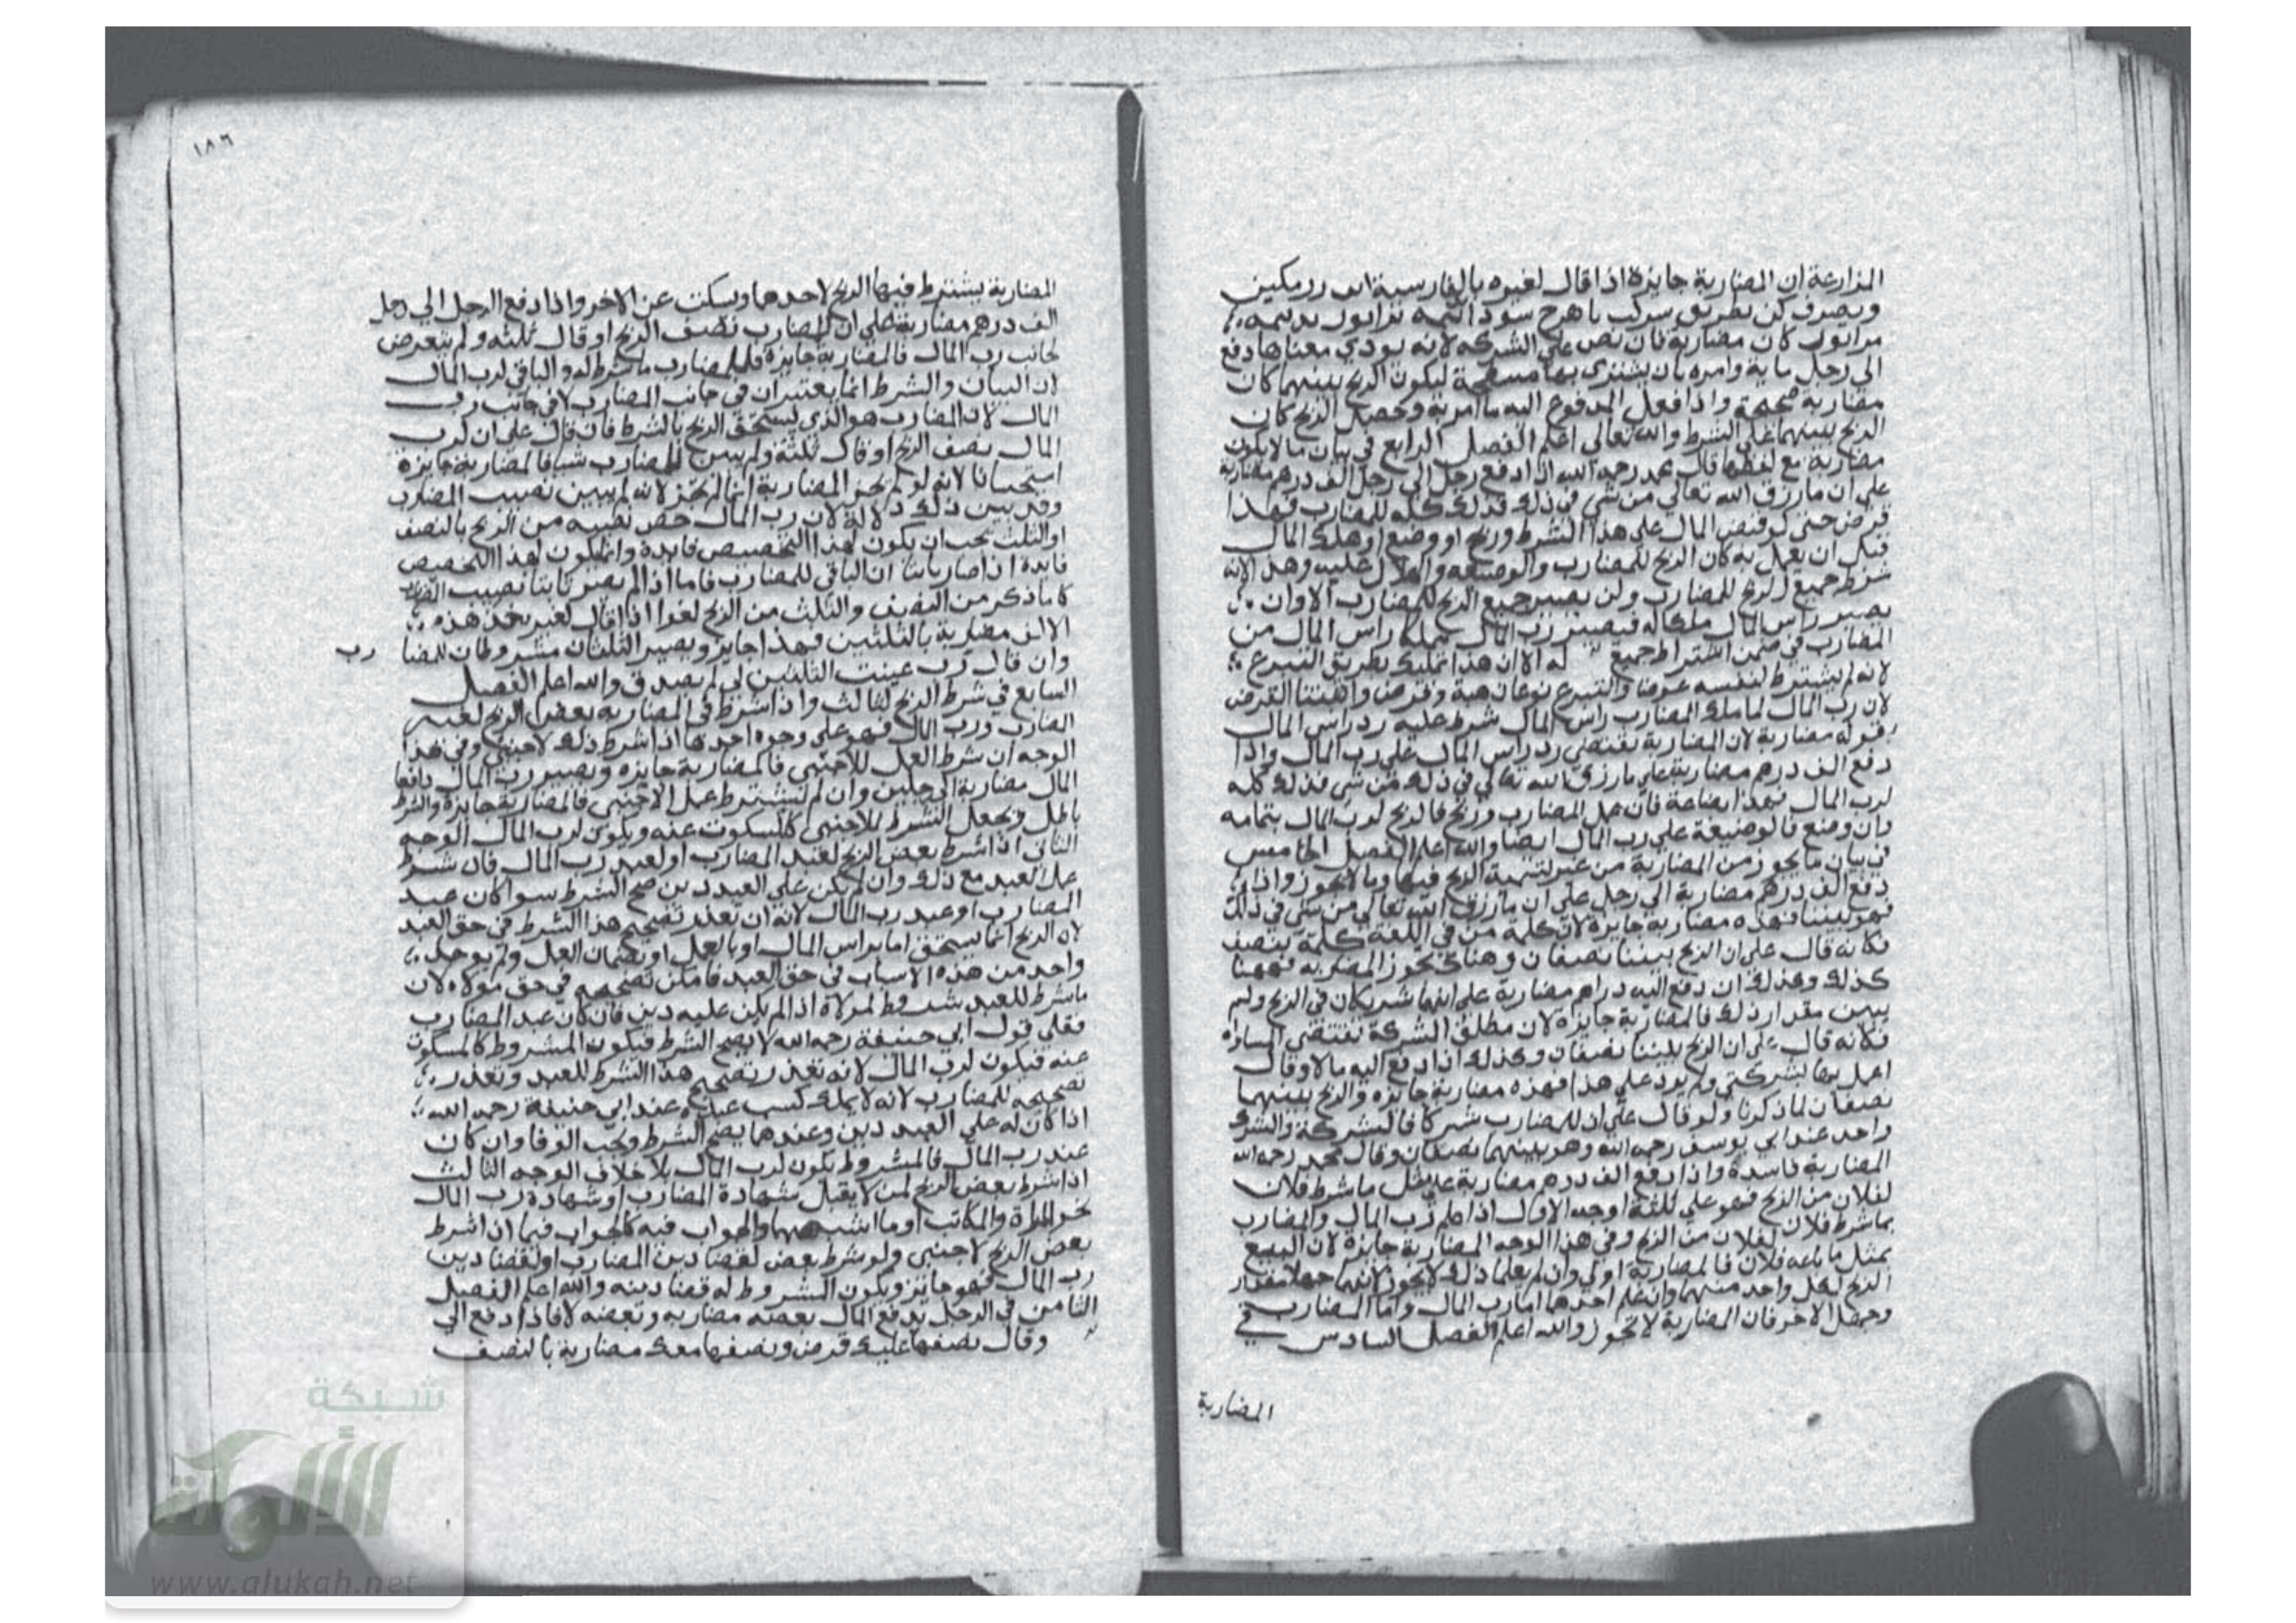 المزارعة ان المضاربة جايزة اذا قال لغيره بالفارسية
كان مضاربة فان نص على الشركه لانه يودي معناها دفع
الى رجل ماية وامره بان يشترى بها ليكون الربح بينهما كان
مضاربة صحيحة واذا فعل المدفوع اليه ما امر به وحصل الربح كان
الربح بينهما على الشرط والله تعالى اعلم الفصل الرابع في بيان ما لا يكون
مضاربة مع لفظها قال محمد رحمه الله اذا دفع رجل الى رجل الف درهم مضاربة
على ان ما رزق الله تعالى من شي في ذلك فذلك كله للمضارب فهذا
قرض حتى لو قبض المال على هذا الشرط وربح او وضع او هلك المال
قبل ان يعمل به كان الربح للمضارب والوضيعه والهلاك عليه وهذا لانه
شرط جميع الربح للمضارب ولن يصير جميع الربح للمضارب الا وان
يصير راس المال ملكا له فيصير رب المال مملكا راس المال من
المضارب في ضمن اشتراط جميع له الا ان هذا تمليك بطريق التبرع
لانه لم يشترط لنفسه عوضا والتبرع نوعان هبة وقرض واثبتنا القرض
لان رب المال لما ملك المضارب راس المال شرط عليه رد راس المال
بقوله مضاربة لان المضاربة تقتضي رد راس المال على رب المال واذا
دفع الف درهم مضاربة على ما رزق الله تعالى في ذلك من شي فذلك كله
لرب المال فهذا بضاعة فان عمل المضارب وربح فالربح لرب المال بتمامه
وان وضع فالوضيعة على رب المال ايضا والله اعلم الفصل الخامس
في بيان ما يجوز من المضاربة من غير تسمية الربح فيها وما لا يجوز واذا
دفع الف درهم مضاربة الى رجل على ان ما رزق الله تعالى من شي في ذلك
فهو بيننا فهذه مضاربة جايزة لان كلمة من في اللغة كلمة
فكانه قال على ان الربح بيننا نصفان وهناك تجوز المضاربه فههنا
كذلك وكذلك ان دفع اليه دراهم مضاربة على انهما شريكان في الربح ولم
يبين مقدار ذلك فالمضاربة جايزة لان مطلق الشركة تقتضي المساواه
فكانه قال على ان الربح بيننا نصفان وكذلك اذا دفع اليه مالا وقال
اعمل بها بشركتي ولم يزد على هذا فهذه مضاربة جايزه والربح بينهما
نصفان لما ذكرنا ولو قال على ان للمضارب شركا فالشركة والشرك
واحد عند ابي يوسف رحمه الله وهو بينهما نصفان وقال محمد رحمه الله
المضاربة فاسدة واذا دفع الف درهم مضاربة على مثل ما شرط فلان
لفلان من الربح فهو على ثلثة اوجه الاول اذا علم رب المال والمضارب
بما شرط فلان لفلان من الربح وفي هذا الوجه المضاربة جايزة لان البيع
بمثل ما باعه فلان فالمضاربة اولى وان لم يعلما ذلك لا يجوز لانهما جهلا مقدار
الربح لكل واحد منهما وان علم احدهما اما رب المال واما المضارب
وجهل الاخر فان المضاربة لا تجوز والله اعلم الفصل السادس في
المضاربة
١٨٦
المضاربة يشترط فيها الربح لاحدهما ويسكت عن الاخر واذا دفع الرجل الى رجل
الف درهم مضاربة على ان للمضارب نصف الربح او قال ثلثه ولم يتعرض
لجانب رب المال فالمضاربة جايزة فللمضارب ما شرط له والباقي لرب المال
لان البيان والشرط انما يعتبران في جانب المضارب لا في جانب رب
المال لان المضارب هو الذي يستحق الربح بالشرط فان قال على ان لرب
المال نصف الربح او قال ثلثه ولم يبين للمضارب شيا فالمضاربة جايزة
استحسانا لانه لو لم تجز المضاربة انما لم تجز لانه لم يبين نصيب المضارب
وقد بين ذلك دلالة لان رب المال خص نصيبه من الربح بالنصف
او الثلث يجب ان يكون لهذا التخصيص فايدة وانما يكون لهذا التخصيص
فايدة اذا صار ثابتا ان الباقي للمضارب فاما اذا لم يصر ثابتا نصيب المضارب
كان ما ذكر من النصف والثلث من الربح لغوا اذا قال لغيره خذ هذه
الالف مضاربة بالثلثين فهذا جايز ويصير الثلثان مشروطان للمضا رب
وان قال رب عينت الثلثين لى لم يصدق والله اعلم الفصل
السابع في شرط الربح لثالث واذا شرط في المضاربه بعض الربح لغير
المضارب ورب المال فهو على وجوه احدها اذا شرط ذلك لاجنبي وفي هذا
الوجه ان شرط العمل للاجنبي فالمضاربة جايزه ويصير رب المال دافعا
المال مضاربة الى رجلين وان لم يشترط عمل الاجنبي فالمضاربة جايزة والشرط
باطل ويجعل الشرط للاجنبي كالمسكوت عنه ويكون لرب المال الوجه
الثاني اذا شرط بعض الربح لعبد المضارب او لعبد رب المال فان شرط
عمل العبد مع ذلك وان لم يكن على العبد دين صح الشرط سوا كان عبد
المضارب او عبد رب المال لانه ان تعذر تصحيح هذا الشرط في حق العبد
لان الربح انما يستحق اما براس المال او بالعمل او بضمان العمل ولم يوجد
واحد من هذه الاسباب في حق العبد فامكن تصحيحه في حق مولاه لان
ما شرط للعبد شرط لمولاه اذا لم يكن عليه دين فان كان عبد المضارب
فعلى قول ابي حنيفة رحمه الله لا يصح الشرط فيكون المشروط كالمسكوت
عنه فيكون لرب المال لانه تعذر تصحيح هذا الشرط للعبد وتعذر
تصحيحه للمضارب لانه لا يملك كسب عبده عند ابي حنيفة رحمه الله
اذا كان له على العبد دين وعندهما يصح الشرط ويجب الوفا وان كان
عبد رب المال فالمشروط يكون لرب المال بلا خلاف الوجه الثالث
اذا شرط بعض الربح لمن لا يقبل شهادة المضارب او شهادة رب المال
نحو المراة والمكاتب او ما اشبههما والجواب فيه كالجواب فيما اذا شرط
بعض الربح لاجنبي ولو شرط بعض لقضا دين المضارب او لقضا دين
رب المال فهو جايز ويكون المشروط له قضا دينه والله اعلم الفصل
الثامن في الرجل يدفع المال بعضه مضاربه وبعضه لا فاذا دفع الى
وقال نصفها عليك قرض ونصفها معك مضاربة بالنصف
شبكة
الألوكة
www.alukah.net